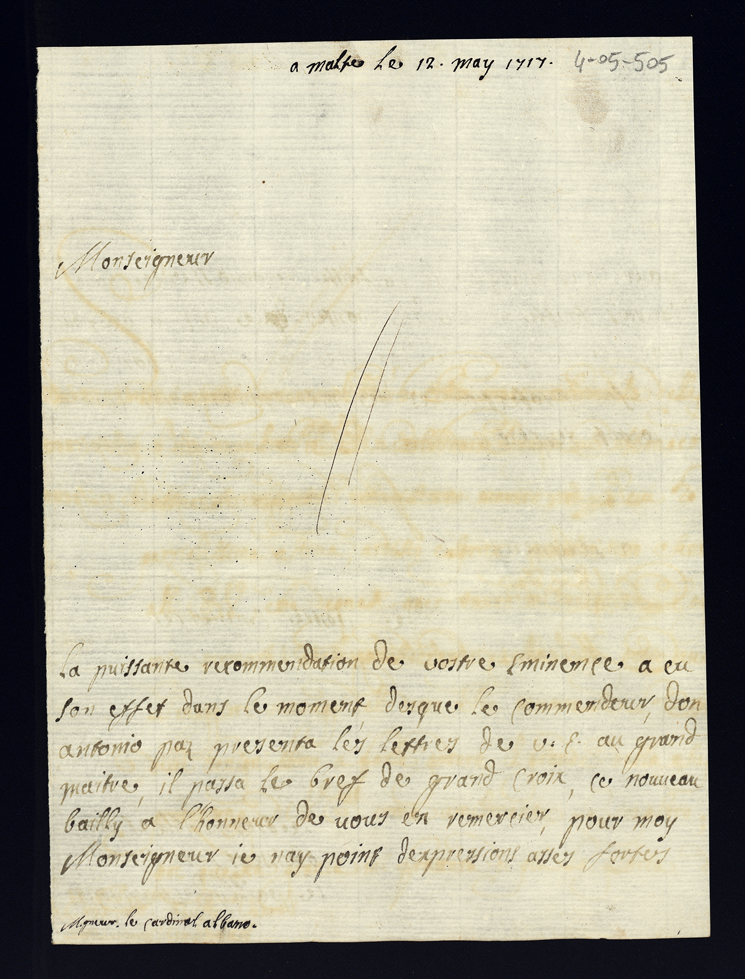 a malte le 12. may 1717. 4-05-505
Monseigneur
la puissante recommendation de vostre Eminence a eu
son effet dans le moment, desque le commendeur, don
antonio paz presenta les lettres de v. E. au grand
maitre, il passa le bref de grand croix, ce nouveau
bailly a l'honneur de vous en remercier, pour moy
Monseigneur ie nay point dexpressions assés fortes
Mgneur. le cardinal albano.